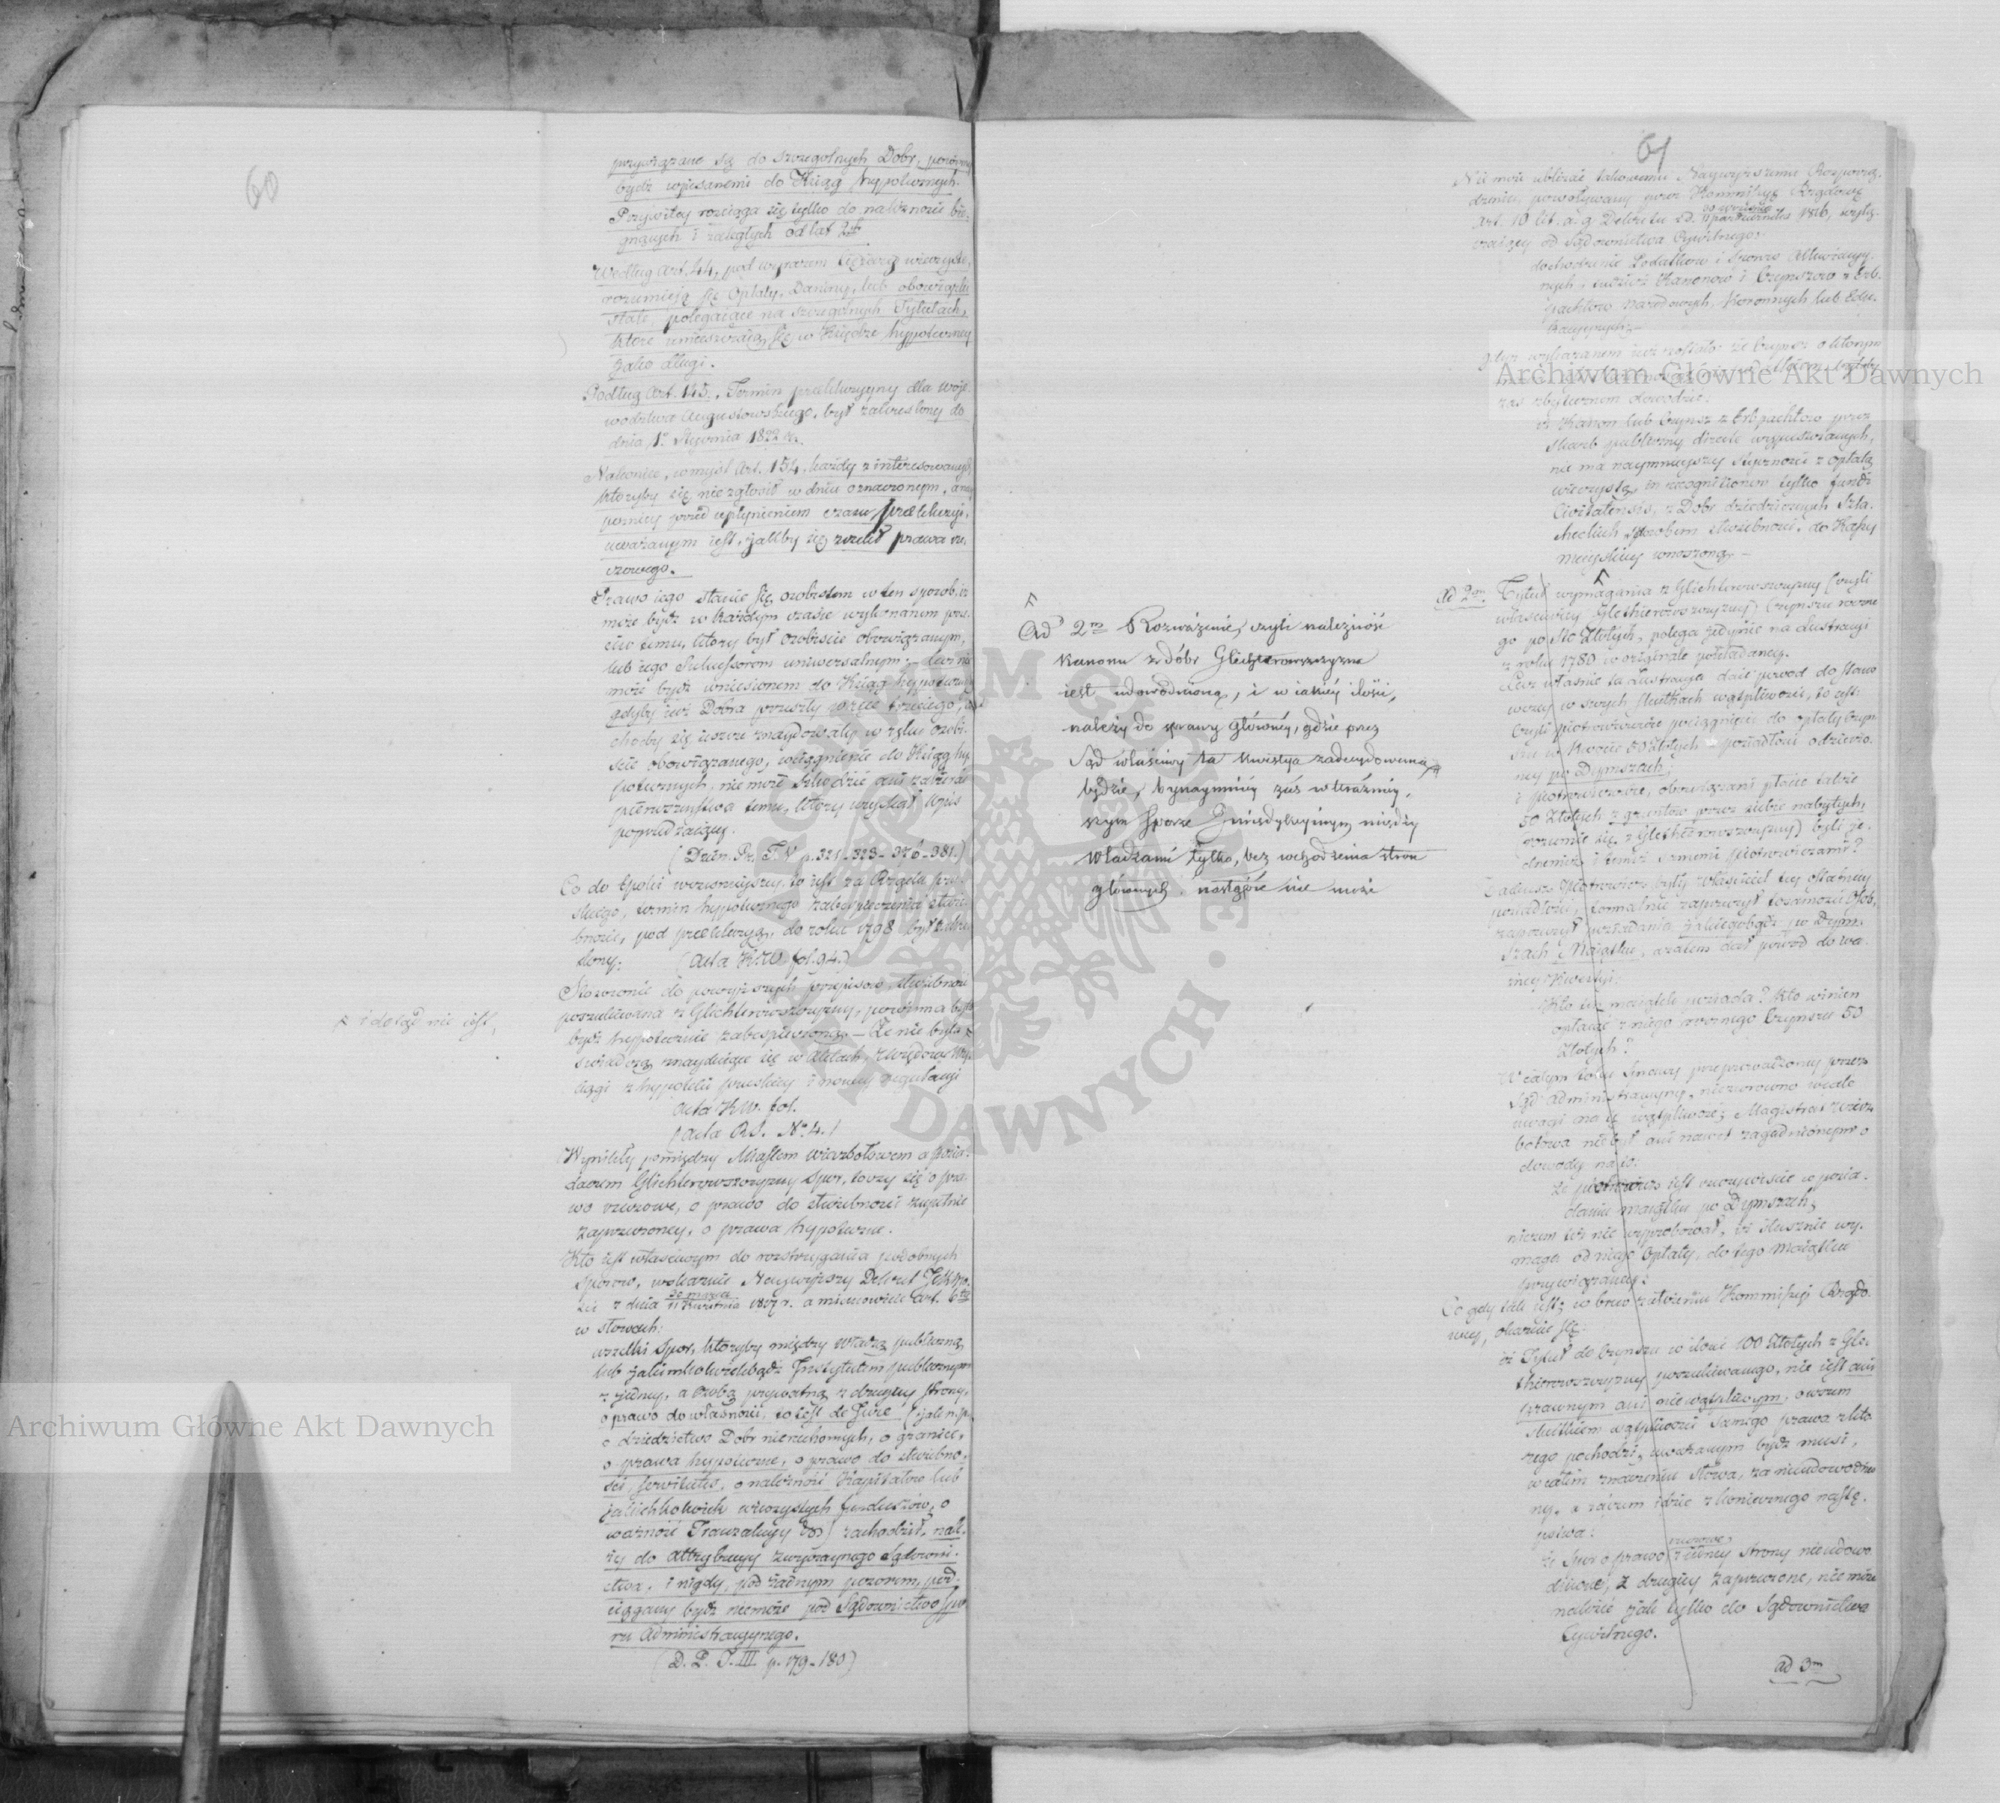 60
przywiązane są do szczegolnych Dobr, powinny
bydź wpisanemi do Xiąg hypotecznych.
Przywiley rozciąga się tylko do należności bie-
gnących i zaległych od lat 2ch
Według Art. 44, pod wyrazem ciężary wieczyste,
rozumieją się Opłaty, Daniny, lub obowiązki
stałe polegaiące na szczegolnych Tytułach,
ktore umieszczaią się w Xiędze hypoteczney
jako długi.
Podług Art. 145, Termin prekluzyyny dla Woje-
wodztwa Augustowskiego, był zakreslony do
dnia 1o Stycznia 1822 r.
Nakoniec, w myśl Art. 154, każdy z interesowanych
ktoryby się nie zgłosił w dniu oznaczonym, a nay
poźniey przed upłynieniem czasu prekluzyi,
uważanym iest, jakby się zrzekł prawa rze-
czowego.
Prawo iego staie się osobistem w ten sposob, iż
może bydź w każdym czasie wykonanem prze-
ciw temu, ktory był osobiscie obowiązanym,
lub iego Sukcessorom uniwersalnym; – Lecz nie
może bydź wniesionem do Xiąg hypotecznych
gdyby iuż Dobra przeszły w ręce trzeciego,
choćby się ieszcze znaydowały w ręku osobi-
scie obowiązanego, wciągnienie do Xiąg hy-
potecznych, nie może szkodzić ani
pierwszeństwa temu, ktory uzyskał wpis
poprzedzaiący.
(Dzien. Pr. T. V p. 321-323-326-381.)
Co do Epoki wczesnieyszey, to iest za Rządu pru-
skiego, termin hypotecznego zabezpieczenia służe-
bności, pod prekluzyą, do roku 1798 był zakre-
slony; (Acta K. W. fol. 94.)
Stosownie do powyższych przepisow, służebność
poszukiwana z Glichterowszczyzny, powinna była
bydź hypotecznie zabezpieczoną – Że nie była
świadczą znayduiące się w Aktach, Urzędowe Wy-
ciągi z hypoteki pruskiey i nowey regulacyi
Acta K. W. fol.
(Acta R. S. No 4.)
^ i dotąd nie iest,
Wynikły pomiędzy Miastem Wierzbołowem a posia-
daczem Glichterowszczyzny spor, toczy się o pra-
wo rzeczowe, o prawo do służebności zupełnie
zaprzeczoney, o prawa hypoteczne.
Kto iest właściwym do rozstrzygania podobnych
sporow, wskazuie Naywyższy Dekret
z dnia 30 marca / 11 Kwietnia 1817 r. a mianowicie Art. 6ty
w słowach:
wszelki spor, ktoryby między Władzą publiczną,
lub jakimkolwiekbądź Instytutem publicznym
z jedney, a osobą prywatną z drugiey strony,
o prawo do własności, to iest de Jure (jak n. p.
o dziedzictwo Dobr nieruchomych, o granice,
o prawa hypoteczne, o prawo do służebno-
ści servitutes, o należność Kapitałow lub
jakichkolwiek wieczystych funduszow, o
ważność Tranzakcyi &&) zachodził, nale-
ży do attrybucyi zwyczaynego Sądowni-
ctwa, i nigdy, pod żadnym pozorem, pod-
ciągany bydź niemoże pod Sądownictwo spo-
ru Administracyynego.
(D. P. T. III p. 179-180)
^
Ad 2m Rozważenie, czyli należność
kanonu z dóbr Glichterowszczyzna
iest udowodnioną, i w iakiey ilości,
należy do sprawy głównéy, gdzie przez
Sąd właściwy ta kwestya zadecydowaną
będzie, bynaymniéy zaś w teraźniéy-
szym sporze Jurisdykcyinym między
Władzami tylko, bez wchodzenia stron
głównych, nastąpić nie może
61
Nie może ubliżać takowemu Naywyższemu Rozporzą-
dzeniu, powoływany przez Kommissyę Rządową
Art. 10 lit. a. g Dekretu z d. 1816, wyłą-
czaiący od Sądownictwa Cywilnego:
dochodzenie Podatkow i Skarbu
nych, tudzież Kanonow i Czynszow z Erb-
pachtow Narodowych, Koronnych lub Edu-
kacyynych; –
gdyż wykazanem iuż zostało: że Czynsz o ktorym
zas zbytecznem dowodzić:
iż Kanon lub Czynsz z Erbpachtow przez
Skarb publiczny
nie ma naymnieyszey styczności z opłatą
wieczystą, in recognitionem tylko fundi
Civitatensis, z Dobr dziedzicznych Szla-
checkich sposobem służebności, do Kassy
mieyskiey wnoszoną. –
Ad 2um Tytuł wymagania z Glichterowszczyzny (czyli
właściwiey Glethierowszczyzny) Czynszu roczne-
go po Sto Złotych, polega jedynie na Lustracyi
z roku 1780 w oryginale pokładaney.
Lecz właśnie ta Lustracya daie powod do Nowo
wczey w swych skutkach wątpliwości, to iest:
Czyli Piotrowiczowie pociągnięci do opłaty Czyn-
szu w kwocie 50 Złotych z posiadłości odziedzi-
ney po Dymszach;
i Piotrowiczowie, obowiązani płacić także
50 Złotych z gruntow przez siebie nabytych,
rozumie się, z Glethierowszczyzny) byli je-
dnemiż i temiż samemi Piotrowiczami?
Tadeusz Piotrowicz były właściciel tey ostatniey
posiadłości, formalnie zaprzeczył tożsamości Osob,
zaprzeczył posiadania jakiegobądź po Dym-
szach Maiątku, a zatem dał powod do wa-
żney Kwestyi:
Kto ten maiątek posiada? Kto winien
opłacać z niego rocznego Czynszu 50
Złotych?
W całym toku Sprawy przeprowadzoney przez
Sąd Administracyyny, niezwrocono wcale
uwagi na tę wątpliwość; Magistrat Wierz-
bołowa nie był ani nawet zagadnionym o
dowody na to:
że Piotrowicz iest rzeczywiście w posia-
daniu maiątku po Dymszach;
niczem też nie wyprobował, iż słusznie wy-
maga od niego Opłaty, do tego Maiątku
przywiązaney;
Co gdy tak iest; wbrew założeniu Kommissyi Rządo-
wey, okazuie się:
iż Tytuł do Czynszu w ilości 100 Złotych z Gle-
thierowszczyzny poszukiwanego, nie iest ani
prawnym ani niewątpliwym, owszem
skutkiem wątpliwości samego prawa z kto-
rego pochodzi, uważanym bydź musi,
w całem znaczeniu słowa, za nieudowodnio-
ny, a zatem idzie z koniecznego nastę-
pstwa:
że spor o prawo rzeczowe, z iedney strony nieudowo-
dnione, z drugiey zaprzeczone, nie może
należeć jak tylko do Sądownictwa
Cywilnego.
ad 3m
Archiwum Główne Akt Dawnych
Archiwum Główne Akt Dawnych
ARCHIWUM GŁÓWNE AKT DAWNYCH